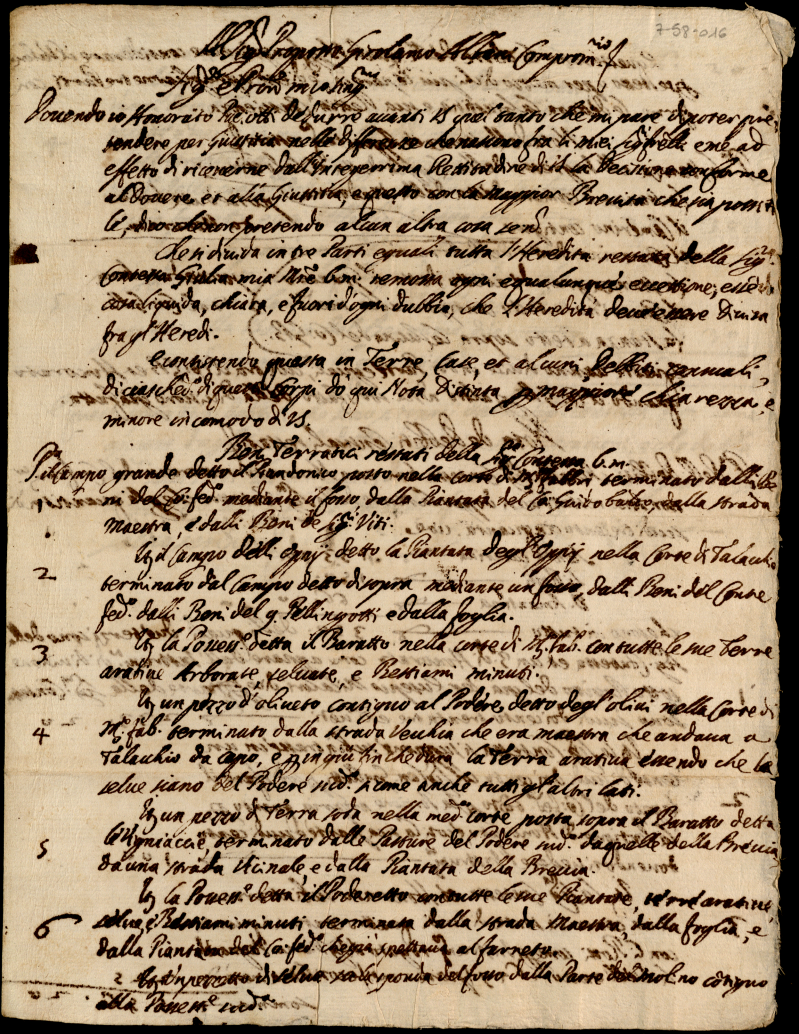 7-58-016
All Sig. Proposto Girolamo Albani Comprom.rio
Sig.re e Pron. mio sing.mo
Douendo io Honorato Ricotti dedurre auanti VS quel tanto che mi pare di poter pre
tendere per Giustitia nelle differenze che nascono fra li miei Sig. frelli e me ad
effetto di riceuerne dall'Integerrima Rettitudine di VS la Decisione conforme
al Douere, et alla Giustitia, e questo con la maggior Breuità che sia possibi
le, dico che non pretendo alcun altra cosa senō
Che si diuida in tre Parti eguali tutta l'Heredità restata della Sig.ra
Contessa Giulia mia Mre b.m. remossa ogni e qualunque eccettione, essēdo
cosa liquida, chiara, e fuori d'ogni dubbio, che l'Heredità deue essere Diuisa
fra gl'Heredi.
E consistendo questa in Terre, Case, et alcuni Debiti annuali,
di ciaschēo di questi Corpi do qui Nota Distinta p maggiore chiarezza, e
minore incomodo di VS.
Beni Terratici restati della Sig.ra Contessa b.m.
P.a Il Campo grande detto il Randonico posto nella corte di M. Fabbri terminato dalli Be
1 ni del Co: fed.o mediante il fosso dalla Piantata del Co: Guido balzo, e dalla strada
maestra, e dalli Beni de Sig.ri Viti.
2 It. il Campo delli Oppij detto la Piantata degl'Oppij nella Corte di Talacchio
terminato dal Campo detto di sopra mediante un fosso, dalli Beni del Conte
fed.o dalli Beni del q. Pellingotti e dalla foglia.
3 It. la Possess.e detta il Baratto nella corte di M. fab. con tutte le sue Terre
aratiue Arborate, seluate, e Bestiami minuti.
It. un pezzo d'oliueto contiguo al Podere detto degl'oliui nella Corte di
4 M. fab. terminato dalla strada Vecchia che era maestra che andaua a
Talacchio da capo, e p in giù fin che dura la Terra aratiua essendo che le
selue siano del Podere sud.o si come anche tutti gl'altri lati.
It. un pezzo di Terra soda nella med.a corte posta sopra il Baratto detta
5 terminato dalle Pasture del Podere sud.o da quelle della Breccia
da una strada Vicinale, e dalla Piantata della Breccia.
It. la Possess.e detta il Poderetto con tutte le sue Piantate, terre aratiue,
6 selue, e Bestiami minuti terminata dalla strada Maestra, dalla foglia, e
dalla Piantata del Co: fed.o che già spettaua al farneto.
It. un pezzetto di selua sponda del fosso dalla Parte del Molino cōtiguo
alla Possess.e sud.a